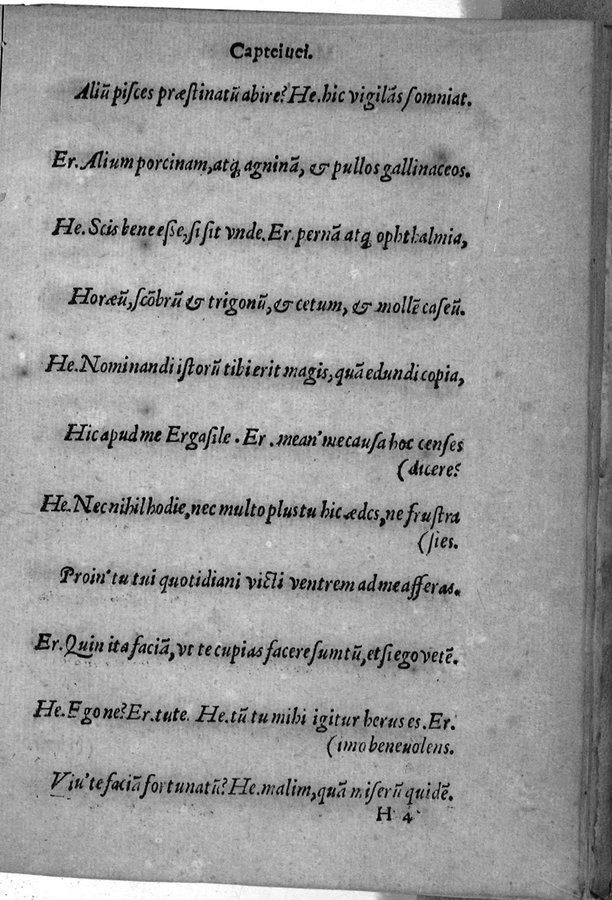 Capteiuei.
Aliũ piſces præſtinatũ abire? He. hic vigilãs ſomniat.
Er. Alium porcinam, atq; agninã, & pullos gallinaceos.
He. Scis bene eſſe, ſi ſit vnde. Er. pernã atq; ophthalmia,
Horæũ, ſcõbrũ & trigonũ, & cetum, & mollẽ caſeũ.
He. Nominandi iſtorũ tibi erit magis, quã edundi copia,
Hic apud me Ergaſile. Er. mean' me cauſa hoc cenſes
(dicere?
He. Nec nihil hodie, nec multo plus tu hic ædes, ne fruſtra
(ſies.
Proin' tu tui quotidiani victi ventrem ad me afferas.
Er. Quin ita faciã, vt te cupias facere ſumtũ, etſi ego vetẽ.
He. Egone? Er. tute. He. tũ tu mihi igitur herus es. Er.
(imo beneuolens.
Viu' te faciã fortunatũ? He. malim, quã miſerũ quidẽ.
H 4